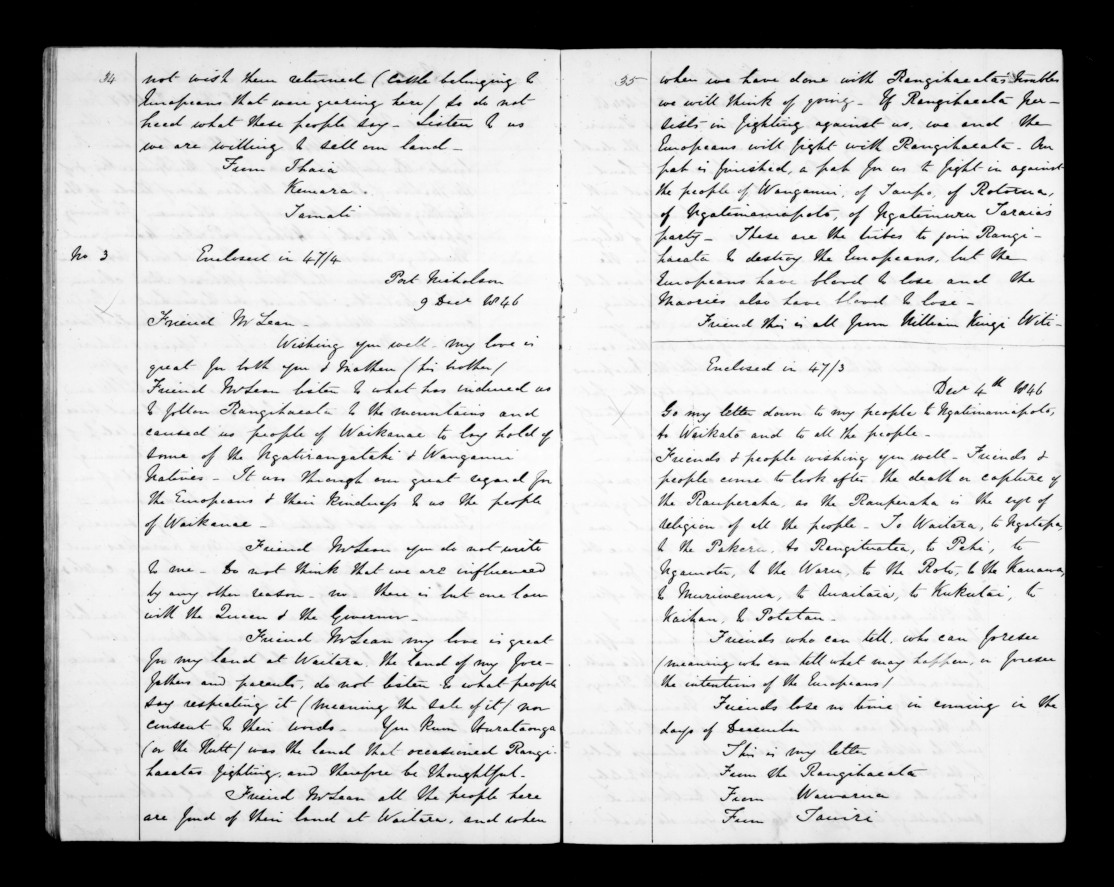 34
not wish them returned (Cattle belonging to
Europeans that were grazing here) so do not
heed what these people say - Listen to us
we are willing to sell our land -
From Ihaia
Kemara
Tamati
No 3
Enclosed in 47/4
Port Nicholson
9 Decr 1846
Friend McLean -
Wishing you well. my love is
great for both you & Mathew (his brother)
Friend McLean listen to what has induced us
to follow Rangihaeata to the mountains and
caused us people of Waikanae to lay hold of
some of the Ngatirangatahi & Wanganui
Natives - It was through our great regard for
the Europeans & their kindness to us the people
of Waikanae -
Friend McLean you do not write
to me - Do not think that we are influenced
by any other reason - no there is but one law
with the Queen & the Governor -
Friend McLean my love is great
for my land at Waitara, the land of my fore-
fathers and parents, do not listen to what people
say respecting it (meaning the sale of it) nor
consent to their words - You know
(or the Hutt) was the land that occasioned Rangi-
haeatas fighting, and therefore be thoughtful -
Friend McLean all the people here
are fond of their land at Waitara, and when
35
when we have done with Rangihaeatas troubles
we will think of going - If Rangihaeata per-
sists in fighting against us, we and the
Europeans will fight with Rangihaeata - Our
pah is finished, a pah for us to fight in against
the people of Wanganui, of Taupo, of Rotorua,
of Ngatimaniapoto, of Ngatimuru Taraia's
party - These are the tribes to join Rangi-
haeata to destroy the Europeans, but the
Europeans have blood to lose and the
Maories also have blood to lose -
Friend this is all from William Kingi Witi -
Enclosed in 47/3
Decr 4th 1846
Go my letter down to my people to Ngatimaniapoto,
to Waikato and to all the people -
Friends & people wishing you well - Friends &
people come to look after the death or capture of
the Rauperaha, as the Rauperaha is the eye of
religion of all the people - To Waitara, to Ngatapa,
to the Pakeru, to Rangituatea, to Pehi, to
Ngamotu, to the Waru, to the Roto, to the Kanawa,
to Muriwenua, to Awaitaia, to Kukutai, to
Kaihau, to Potatau -
Friends who can tell, who can foresee
(meaning who can tell what may happen, or foresee
the intentions of the Europeans)
Friends lose no time in coming in the
days of December
This is my letter
From the Rangihaeata
From
From Tawiri